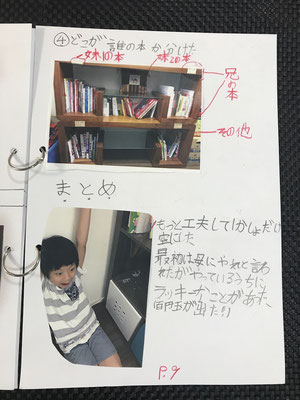 ④どこが誰の本か分けた
妹1の本
妹2の本
兄の本
その他
まとめ
もっと工夫して1かしょだけ
空にした
最初は母にやれと言わ
れたがやっているうちに
ラッキーなことがあった
百円玉が出たり
P.9